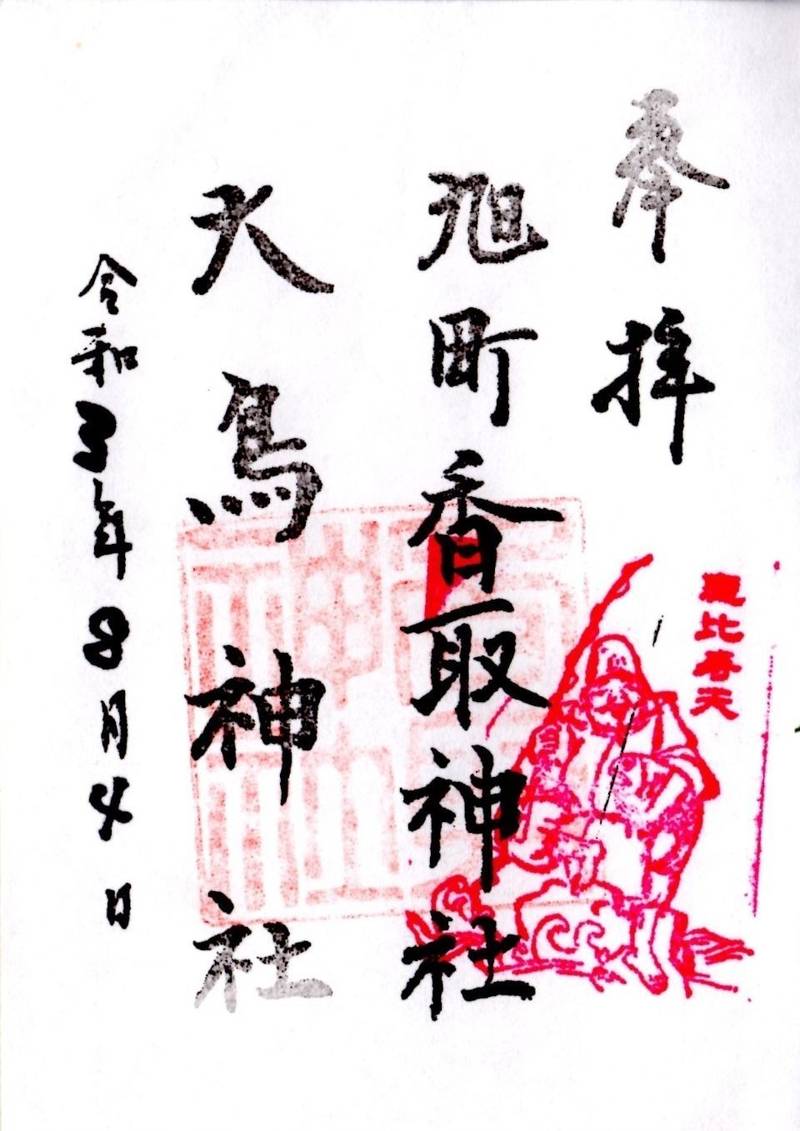 奉拝
恵比寿天
旭町香取神社
大鳥神社
令和3年8月4日